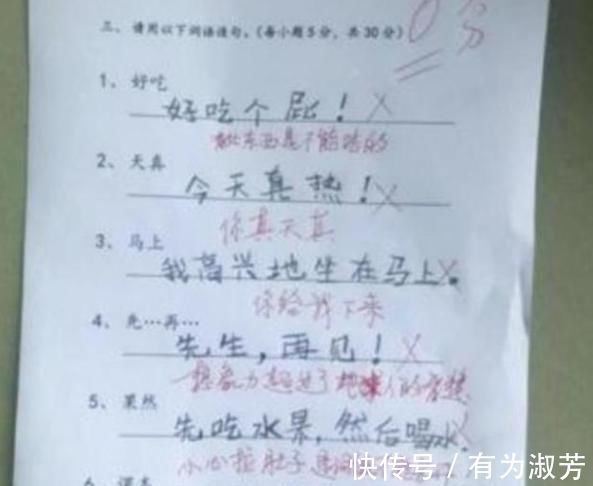 0分
三、请用以下词语造句。(每小题5分,共30分)
1、好吃
好吃个屁!
东西是不能吃的
2、天真
今天真热!
你真天真
3、马上
我高兴地坐在马上。
你给我下来
4、先…再…
先生,再见!
想象力超过了地球人的智慧
5、果然
先吃水果,然后喝水
小心拉肚子
快传号/有为淑芳